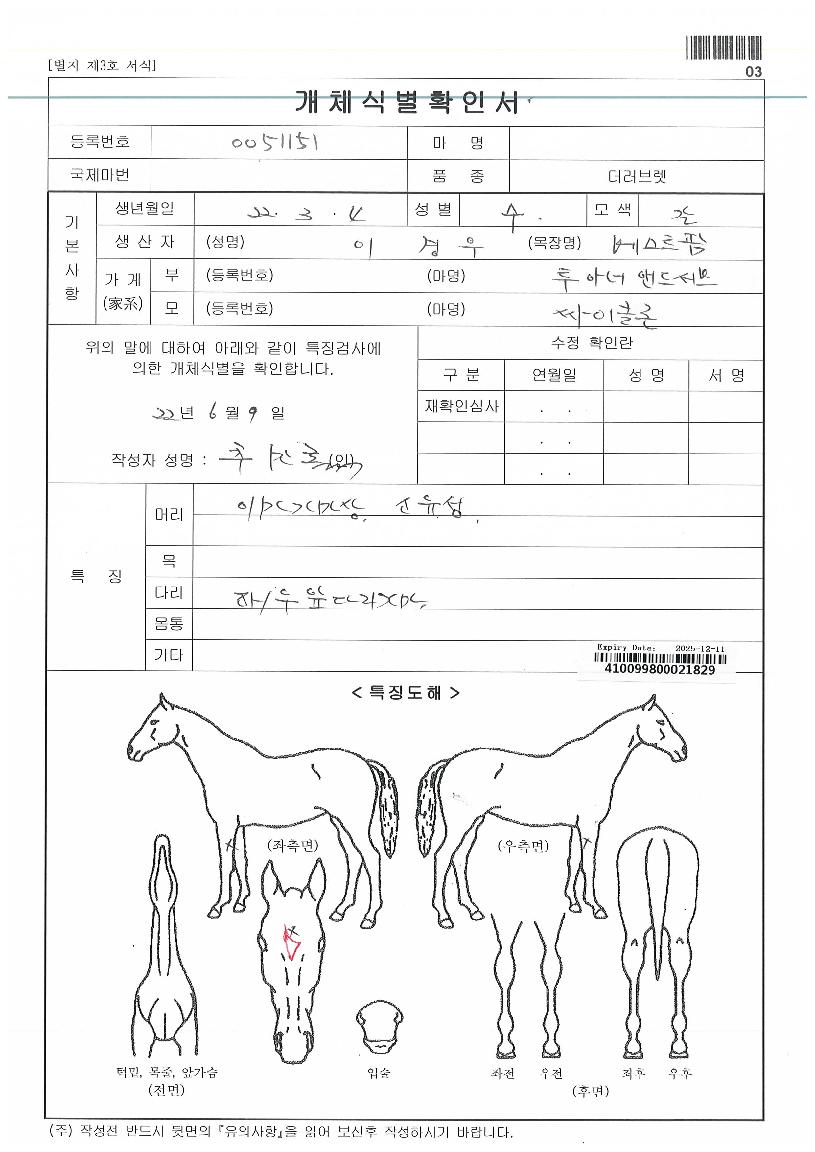 [별지 제3호 서식]
03
개체식별확인서
등록번호 0051151 마 명
국제마번 품 종 더러브렛
기본사항
생년월일 22. 3. 4 성별 수. 모색 갈
생산자 (성명) 이경우 (목장명) 베스트팜
가계 (家系) 부 (등록번호) (마명) 투아너앤드서브
모 (등록번호) (마명)
위의 말에 대하여 아래와 같이 특징검사에
의한 개체식별을 확인합니다.
22년 6월 9일
작성자 성명 : (인)
수정 확인란
구 분 연월일 성 명 서 명
재확인심사 . .
. .
. .
특 징
머리
목
다리 좌/우 앞다리
몸통
기타
Expiry Date: 2025-12-11
410099800021829
< 특징도해 >
(좌측면) (우측면)
턱밑, 목줄, 앞가슴
(전면)
입술
좌전 우전 좌후 우후
(후면)
(주) 작성전 반드시 뒷면의 『유의사항』을 읽어 보신후 작성하시기 바랍니다.